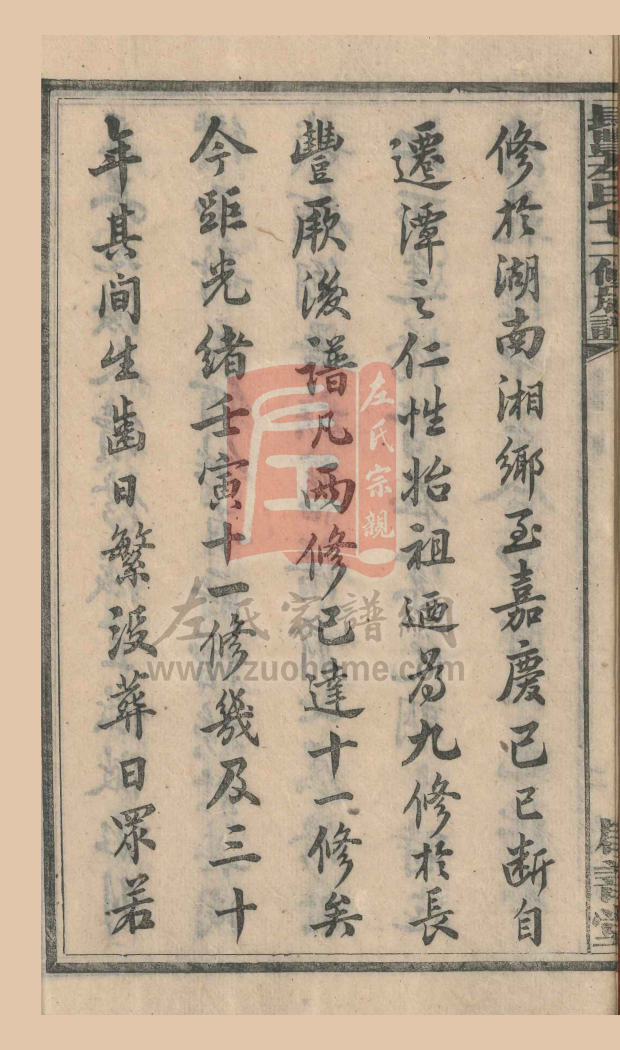 修於湖南湘鄉至嘉慶己巳断自
遷潭之仁性怡祖迺為九修於長
豐厥後譜凡兩修已達十一修矣
今距光緒壬寅十一修幾及三十
年其間生齒日繁没葬日眾若
長豐左氏十二修族譜
左氏宗親
左氏家譜網
www.zuohome.com